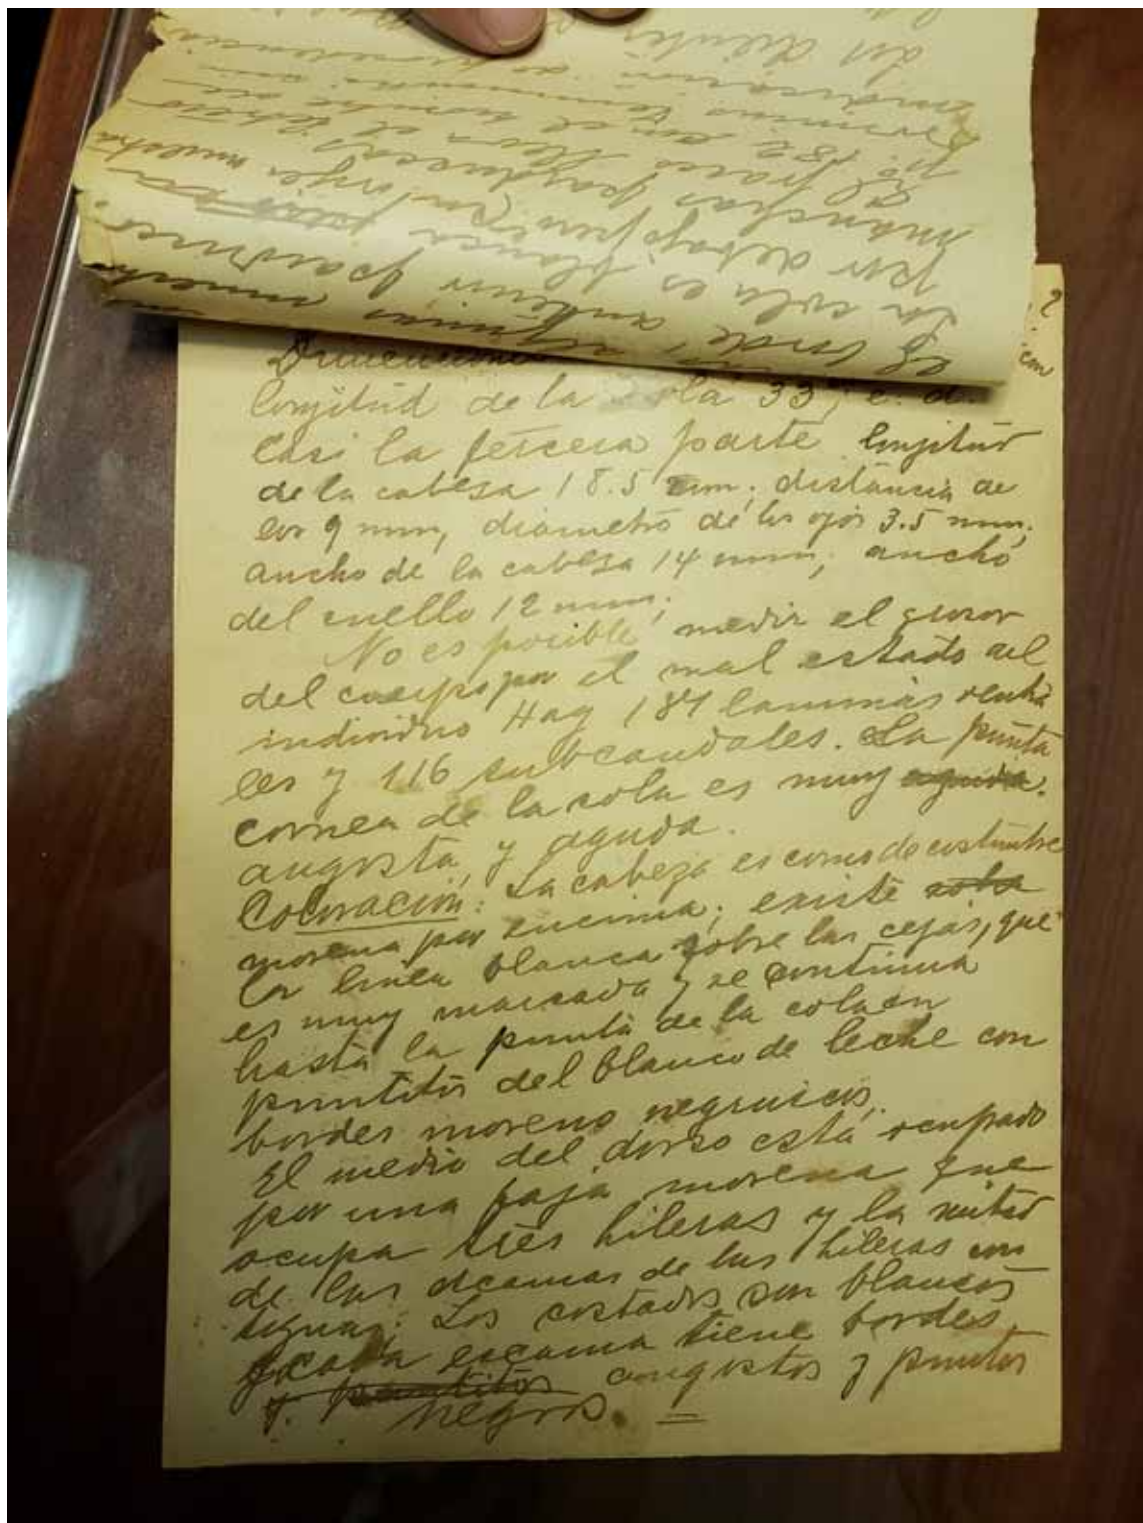 del dientes
al frasco lleva el letrero
manchas parduscas
por debajo pero (en lo rojes muestra
La cola es blanca
el borde anterior pardusco.
2
con
Dimensiones
longitud de la cola 33; e. d.
casi la tercera parte longitud
de la cabesa 18.5 mm; distancia de
los 9 mm, diametro de los ojos 3.5 mm;
ancho de la cabesa 14 mm; ancho
del cuello 12 mm;
No es posible medir el grosor
del cuerpo por el mal estado del
individuo Hay 184 laminas ventra
les y 116 subcaudales. La punta
cornea de la cola es muy aguda.
angosta, y aguda.
Coloracion: La cabeza es como de costumbre
morena por encima; existe
la linea blanca sobre las cejas, que
es muy marcada y se continua
hasta la punta de la cola en
puntitos del blanco de leche con
bordes moreno negruscos.
El medio del dorso está ocupado
por una faja morena que
ocupa tres hileras y la mitad
de las escamas de las hileras con
tiguas; Los costados son blancos
y cada escama tiene bordes
y puntitos angostos y puntos
negros.